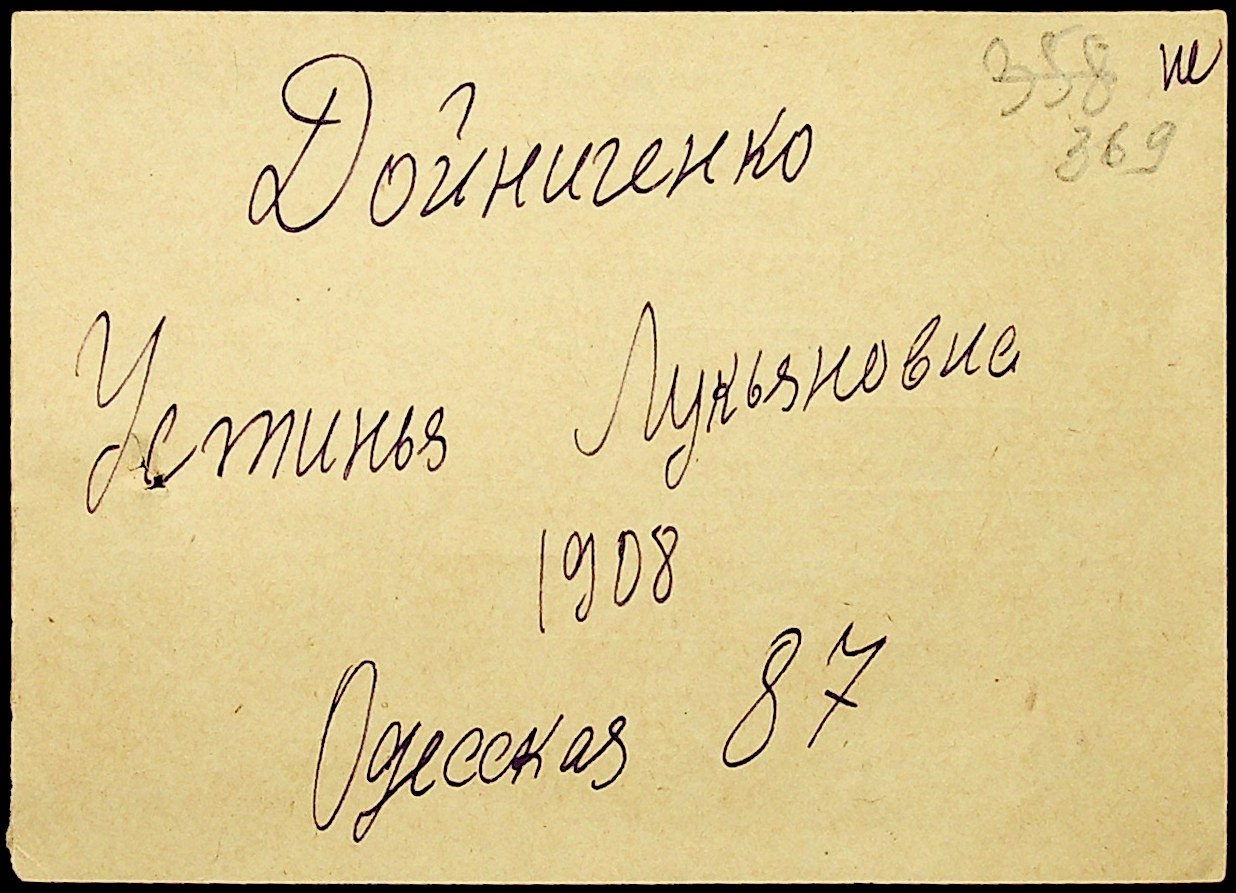 358 не
369
Дойниченко
Устинья Лукьяновна
1908
Одесская 87